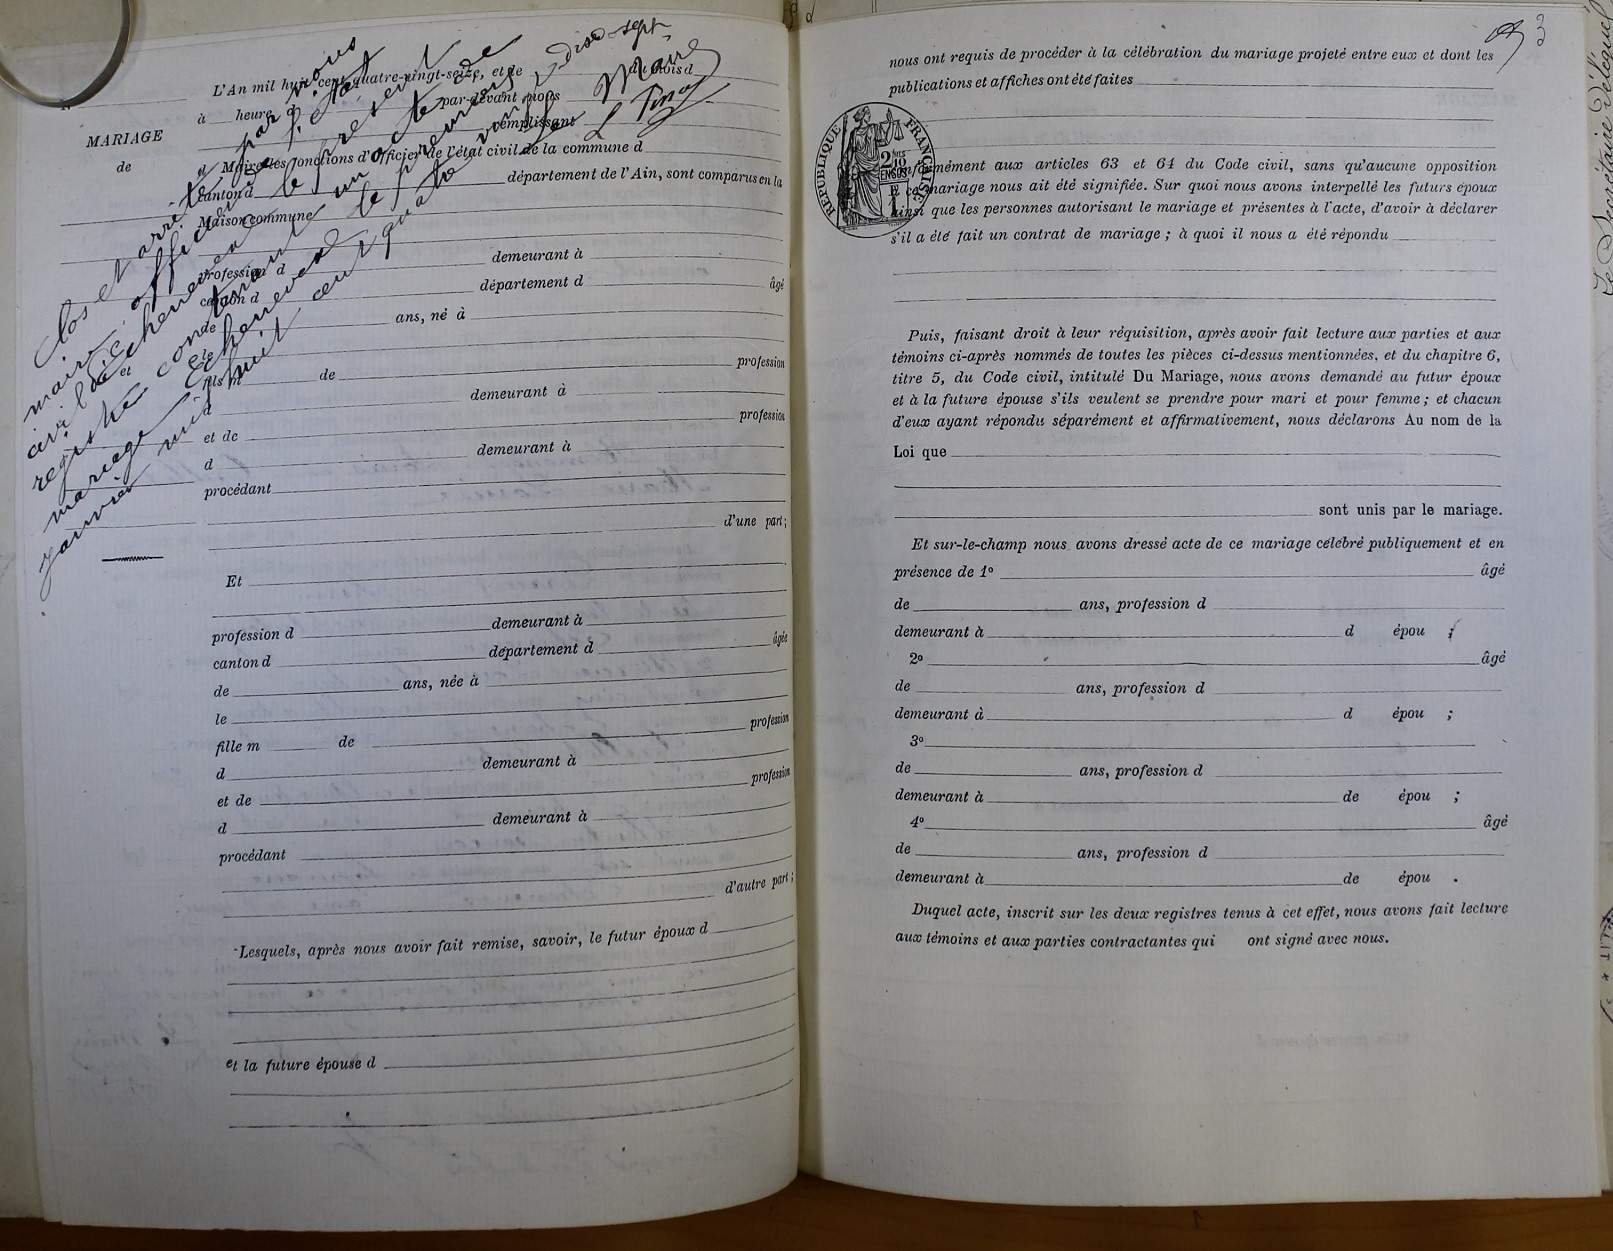 Clos et arrêté par nous
maire, officier de l'état
civil d'Echenevex le présent
registre contenant un acte de
mariage Echenevex le premier
janvier mil huit cent quatre vingt dix-sept
Le Maire
L'An mil huit cent quatre-vingt-seize, et le du mois d
à heure d par-devant nous
MARIAGE
de
remplissant
d Maire les fonctions d'officier de l'état civil de la commune d
canton d département de l'Ain, sont comparus en la
Maison commune
profession d demeurant à
canton d département d âgé
de ans, né à
le
fils m de profession
d demeurant à
et de profession
d demeurant à
procédant
d'une part;
Et
profession d demeurant à
canton d département d âgée
de ans, née à
le
fille m de profession
d demeurant à
et de profession
d demeurant à
procédant
d'autre part;
Lesquels, après nous avoir fait remise, savoir, le futur époux d
et la future épouse d
3
nous ont requis de procéder à la célébration du mariage projeté entre eux et dont les
publications et affiches ont été faites
RÉPUBLIQUE FRANÇAISE
conformément aux articles 63 et 64 du Code civil, sans qu'aucune opposition
à ce mariage nous ait été signifiée. Sur quoi nous avons interpellé les futurs époux
ainsi que les personnes autorisant le mariage et présentes à l'acte, d'avoir à déclarer
s'il a été fait un contrat de mariage; à quoi il nous a été répondu
Puis, faisant droit à leur réquisition, après avoir fait lecture aux parties et aux
témoins ci-après nommés de toutes les pièces ci-dessus mentionnées, et du chapitre 6,
titre 5, du Code civil, intitulé Du Mariage, nous avons demandé au futur époux
et à la future épouse s'ils veulent se prendre pour mari et pour femme; et chacun
d'eux ayant répondu séparément et affirmativement, nous déclarons Au nom de la
Loi que
sont unis par le mariage.
Et sur-le-champ nous avons dressé acte de ce mariage célébré publiquement et en
présence de 1º âgé
de ans, profession d
demeurant à d épou ;
2º âgé
de ans, profession d
demeurant à d épou ;
3º
de ans, profession d
demeurant à de épou ;
4º âgé
de ans, profession d
demeurant à de épou .
Duquel acte, inscrit sur les deux registres tenus à cet effet, nous avons fait lecture
aux témoins et aux parties contractantes qui ont signé avec nous.